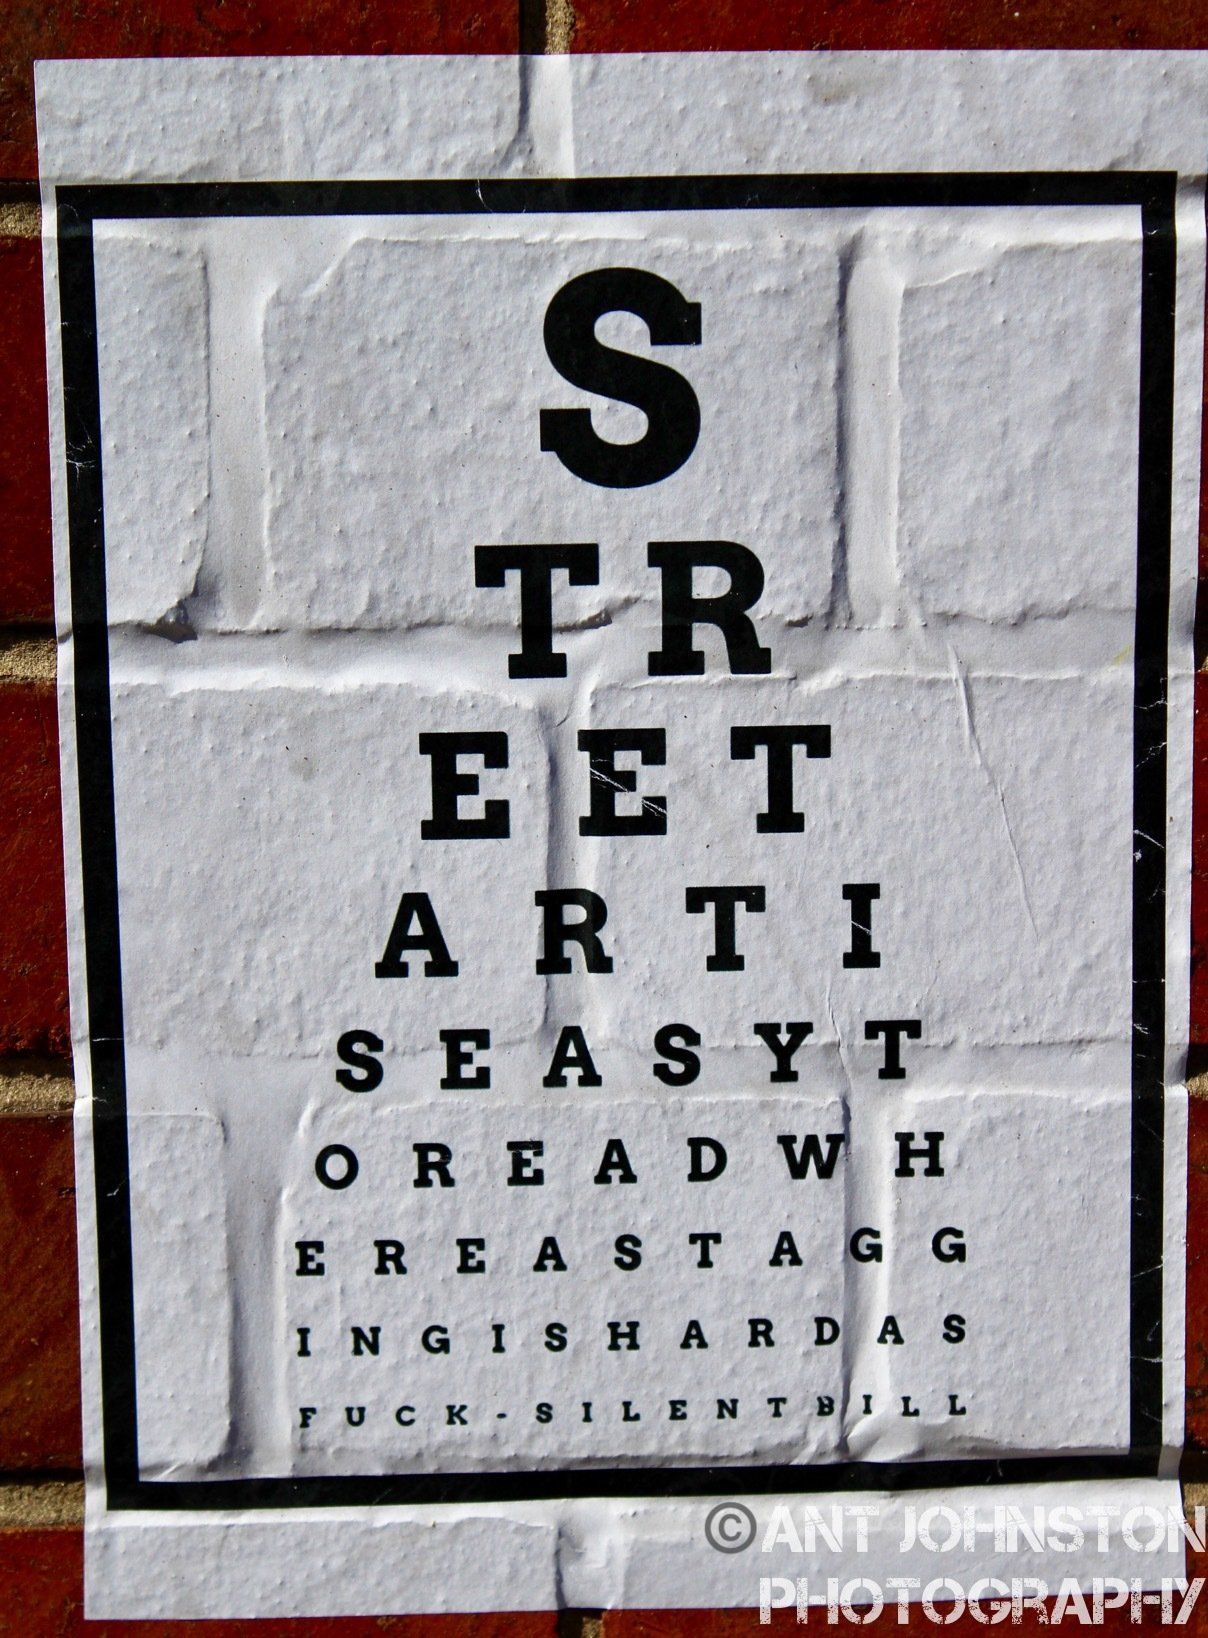 S
TR
EET
ARTI
SEASYT
OREADWH
EREASTAGG
INGISHARDAS
FUCK-SILENTBILL
©ANT JOHNSTON
PHOTOGRAPHY